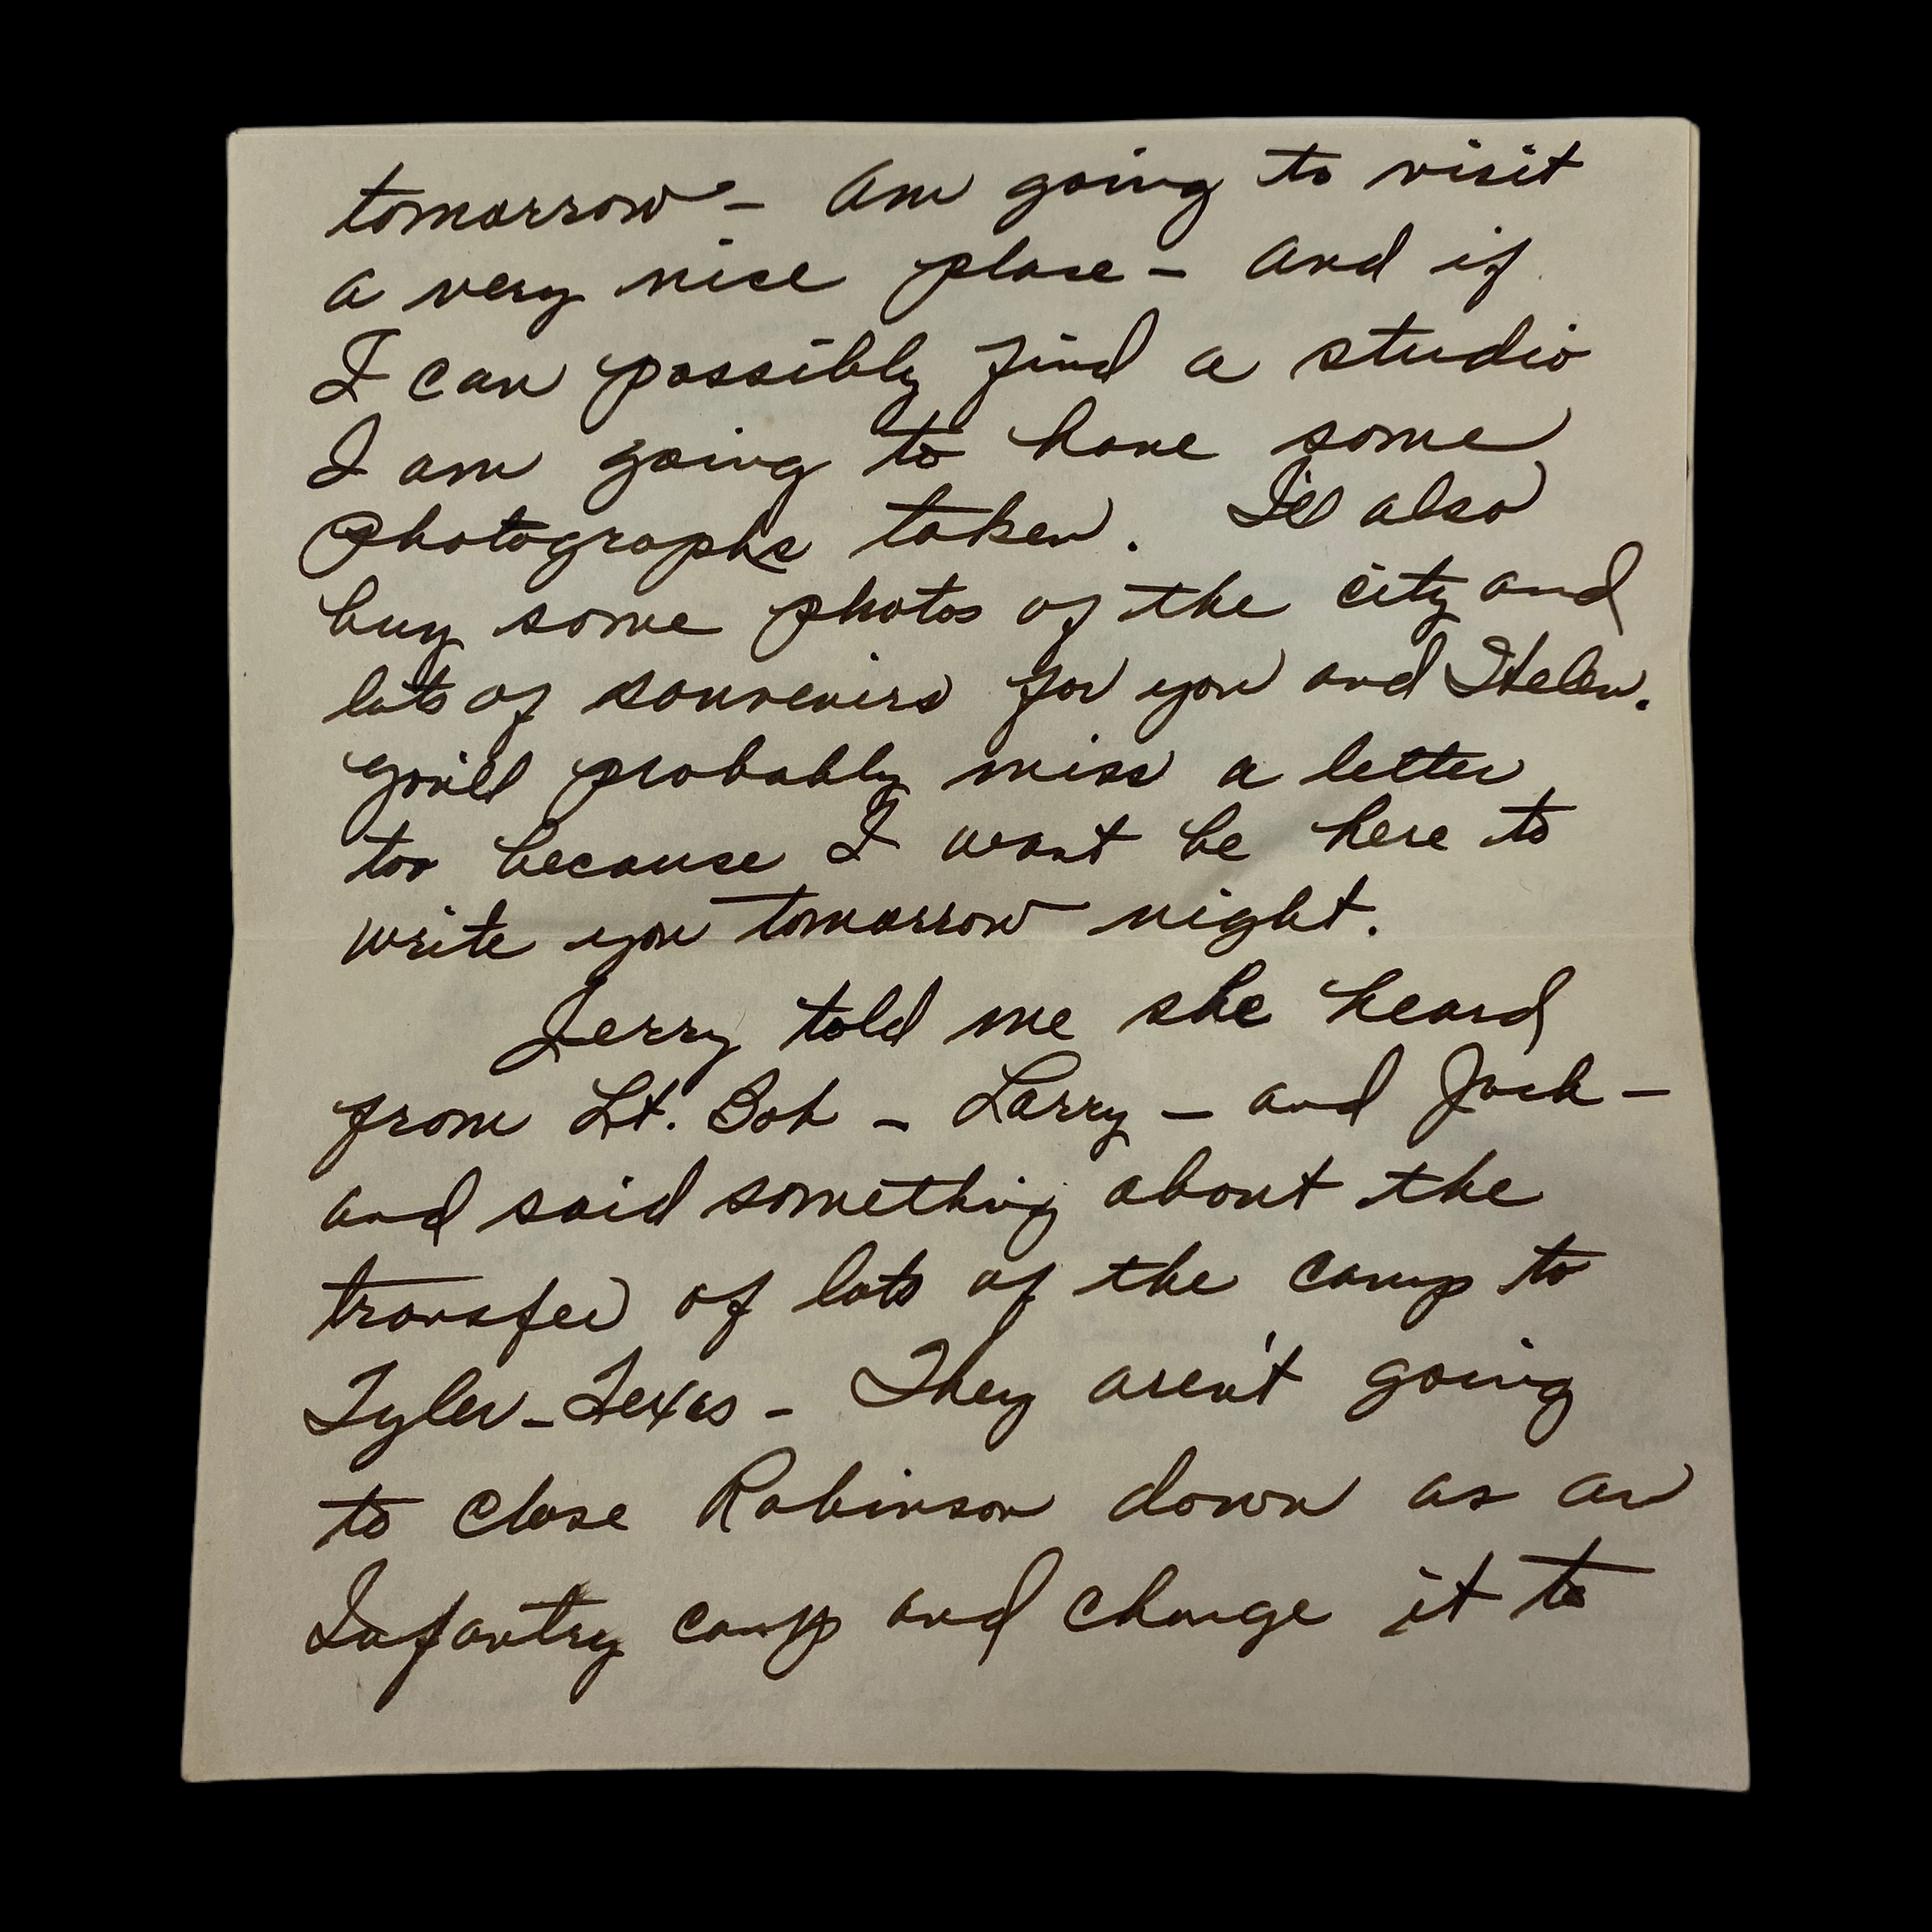 tomorrow - Am going to visit
a very nice place - And if
I can possibly find a studio
I am going to have some
Photographs taken. I'll also
buy some photos of the city and
lots of souvenirs for you and Helen.
You'll probably miss a letter
too because I won't be here to
write you tomorrow night.
Jerry told me she heard
from Lt. Bob - Larry - and Jack -
and said something about the
transfer of lots of the camp to
Tyler - Texas - They aren't going
to close Robinson down as an
Infantry camp and change it to